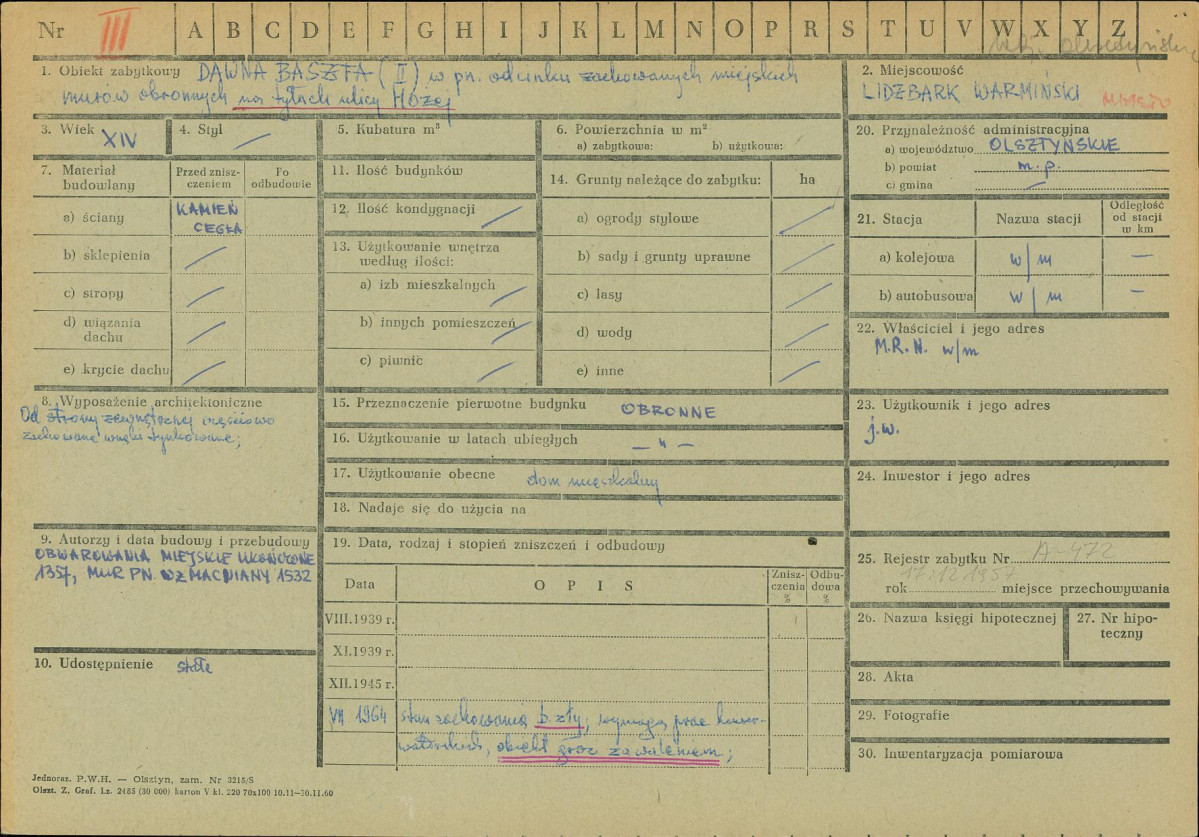 Nr III A B C D E F G H I J K L M N O P R S T U V W X Y Z
1. Obiekt zabytkowy DAWNA BASZTA (II) w pn. odcinku zachowanych miejskich
murów obronnych na tyłach ulicy Hożej
2. Miejscowość
LIDZBARK WARMIŃSKI miasto
3. Wiek XIV
4. Styl —
5. Kubatura m³
6. Powierzchnia w m²
a) zabytkowa: b) użytkowa:
20. Przynależność administracyjna
a) województwo OLSZTYŃSKIE
b) powiat m.p.
c) gmina —
7. Materiał
budowlany
Przed znisz-
czeniem
Po
odbudowie
a) ściany KAMIEŃ
CEGŁA
b) sklepienia —
c) stropy —
d) wiązania
dachu —
e) krycie dachu —
11. Ilość budynków
12. Ilość kondygnacji —
13. Użytkowanie wnętrza
według ilości:
a) izb mieszkalnych —
b) innych pomieszczeń —
c) piwnic —
14. Grunty należące do zabytku: ha
a) ogrody stylowe —
b) sady i grunty uprawne —
c) lasy —
d) wody —
e) inne —
21. Stacja Nazwa stacji Odległość
od stacji
w km
a) kolejowa w/m —
b) autobusowa w/m —
22. Właściciel i jego adres
M.R.N. w/m
8. Wyposażenie architektoniczne
Od strony zewnętrznej częściowo
zachowane wnęki tynkowane;
15. Przeznaczenie pierwotne budynku OBRONNE
16. Użytkowanie w latach ubiegłych — " —
17. Użytkowanie obecne dom mieszkalny
18. Nadaje się do użycia na
23. Użytkownik i jego adres
j.w.
24. Inwestor i jego adres
9. Autorzy i data budowy i przebudowy
OBWAROWANIA MIEJSKIE UKOŃCZONE
1357, MUR PN. WZMACNIANY 1532
10. Udostępnienie stałe
19. Data, rodzaj i stopień zniszczeń i odbudowy
Data O P I S Znisz-
czenia
% Odbu-
dowa
%
VIII.1939 r.
XI.1939 r.
XII.1945 r.
VII 1964 stan zachowania b. zły; wymaga prac konser-
watorskich, obiekt grozi zawaleniem;
25. Rejestr zabytku Nr A-472
17.12.1957
rok miejsce przechowywania
26. Nazwa księgi hipotecznej
27. Nr hipo-
teczny
28. Akta
29. Fotografie
30. Inwentaryzacja pomiarowa
Jednoraz. P.W.H. — Olsztyn, zam. Nr 3215/S
Olszt. Z. Graf. Lz. 2485 (30 000) karton V kl. 220 70x100 10.11—30.11.60